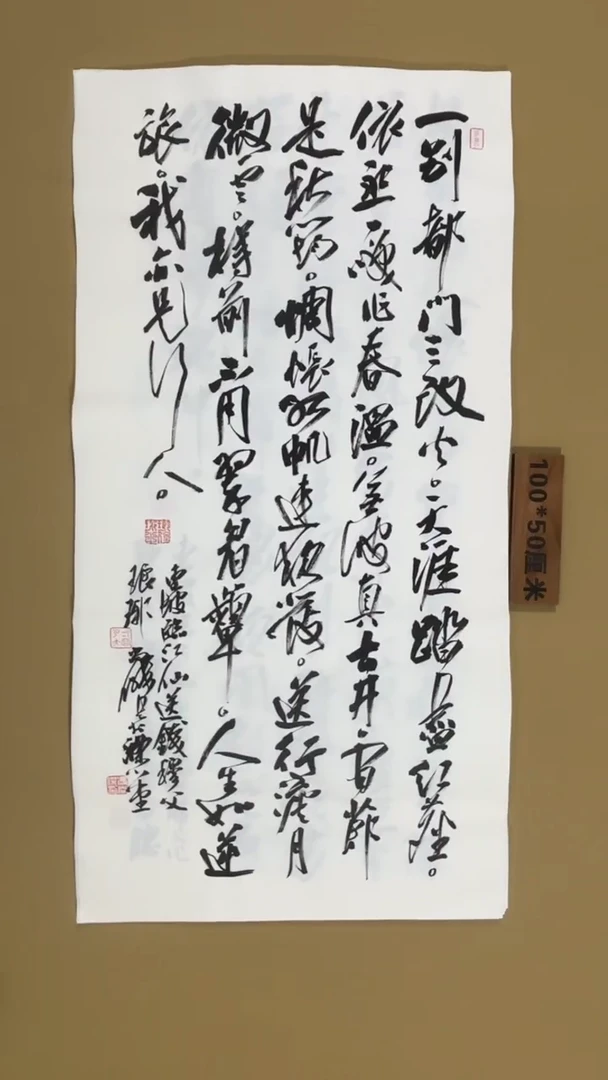 一别都门三改火。天涯踏尽红塵。
依然一咲作春温。无波真古井。有節
是秋筠。惆悵孤帆連夜發。送行淡月
微雲。樽前不用翠眉颦。人生如逆
旅。我亦是行人。
東坡臨江仙送錢穆父
琅琊
100*50厘米